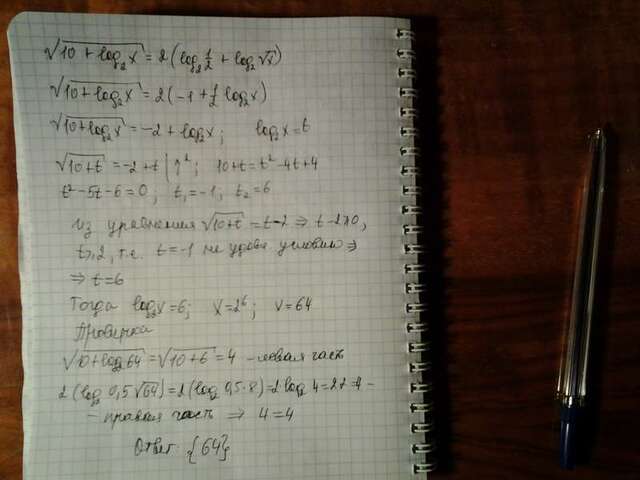 √(10 + log₂x) = 2(log₂ 1/2 + log₂ √x)
√(10 + log₂x) = 2(-1 + 1/2 log₂x)
√(10 + log₂x) = -2 + log₂x; log₂x = t
√(10+t) = -2+t | ↑²; 10+t = t²-4t+4
t²-5t-6=0; t₁=-1; t₂=6
Из уравнения √(10+t) = t-2 ⇒ t-2≥0,
t≥2, т.е. t=-1 не удовл. условию ⇒
⇒ t=6
Тогда log₂x=6; x=2⁶; x=64
Проверка
√(10+log₂64) = √(10+6) = 4 - левая часть
2(log₂ 0,5√64) = 2(log₂ 0,5·8) = 2log₂ 4 = 2·2 = 4 -
- правая часть ⇒ 4=4
Ответ: {64}